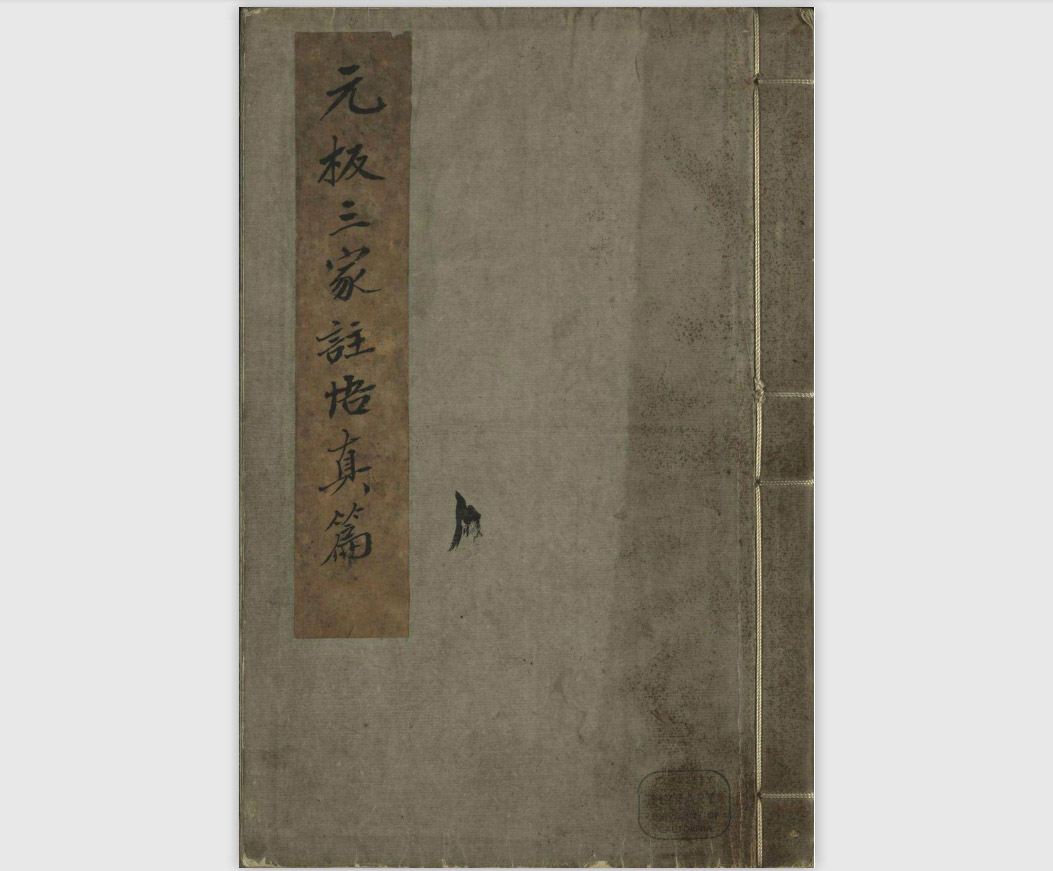 元板三家註悟真篇
CALIFORNIA